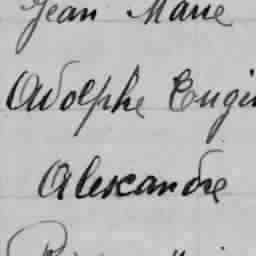 Jean Marie
Adolphe Eugè
Alexandre